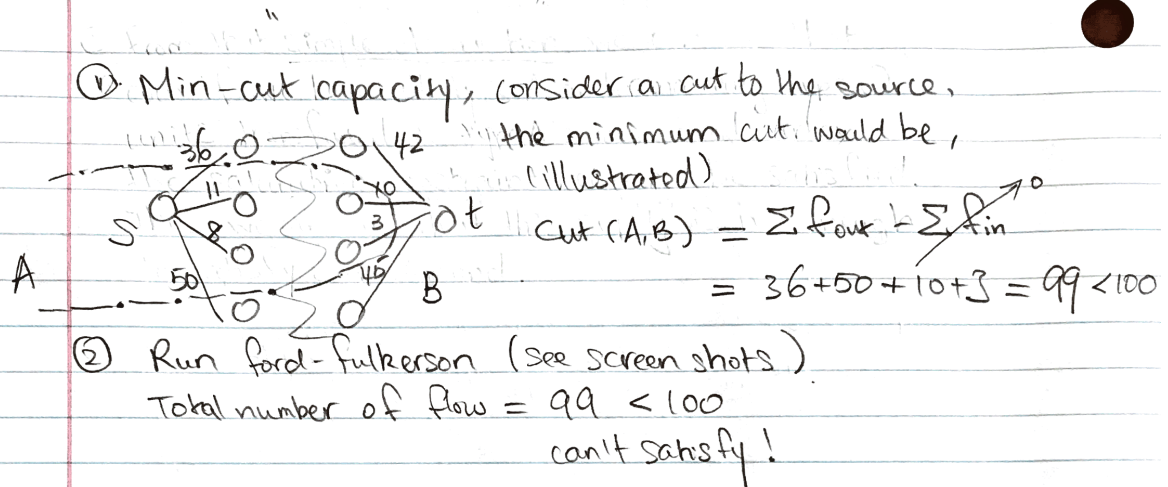 ① Min-cut capacity, consider a cut to the source,
the minimum cut would be,
(illustrated)
36 42
11 10
S 8 3 t
Cut (A,B) = Σ fout - Σ fin → 0
A 50 45 B
= 36+50+10+3 = 99 <100
② Run ford-fulkerson (see screenshots)
Total number of flow = 99 < 100
can't satisfy!